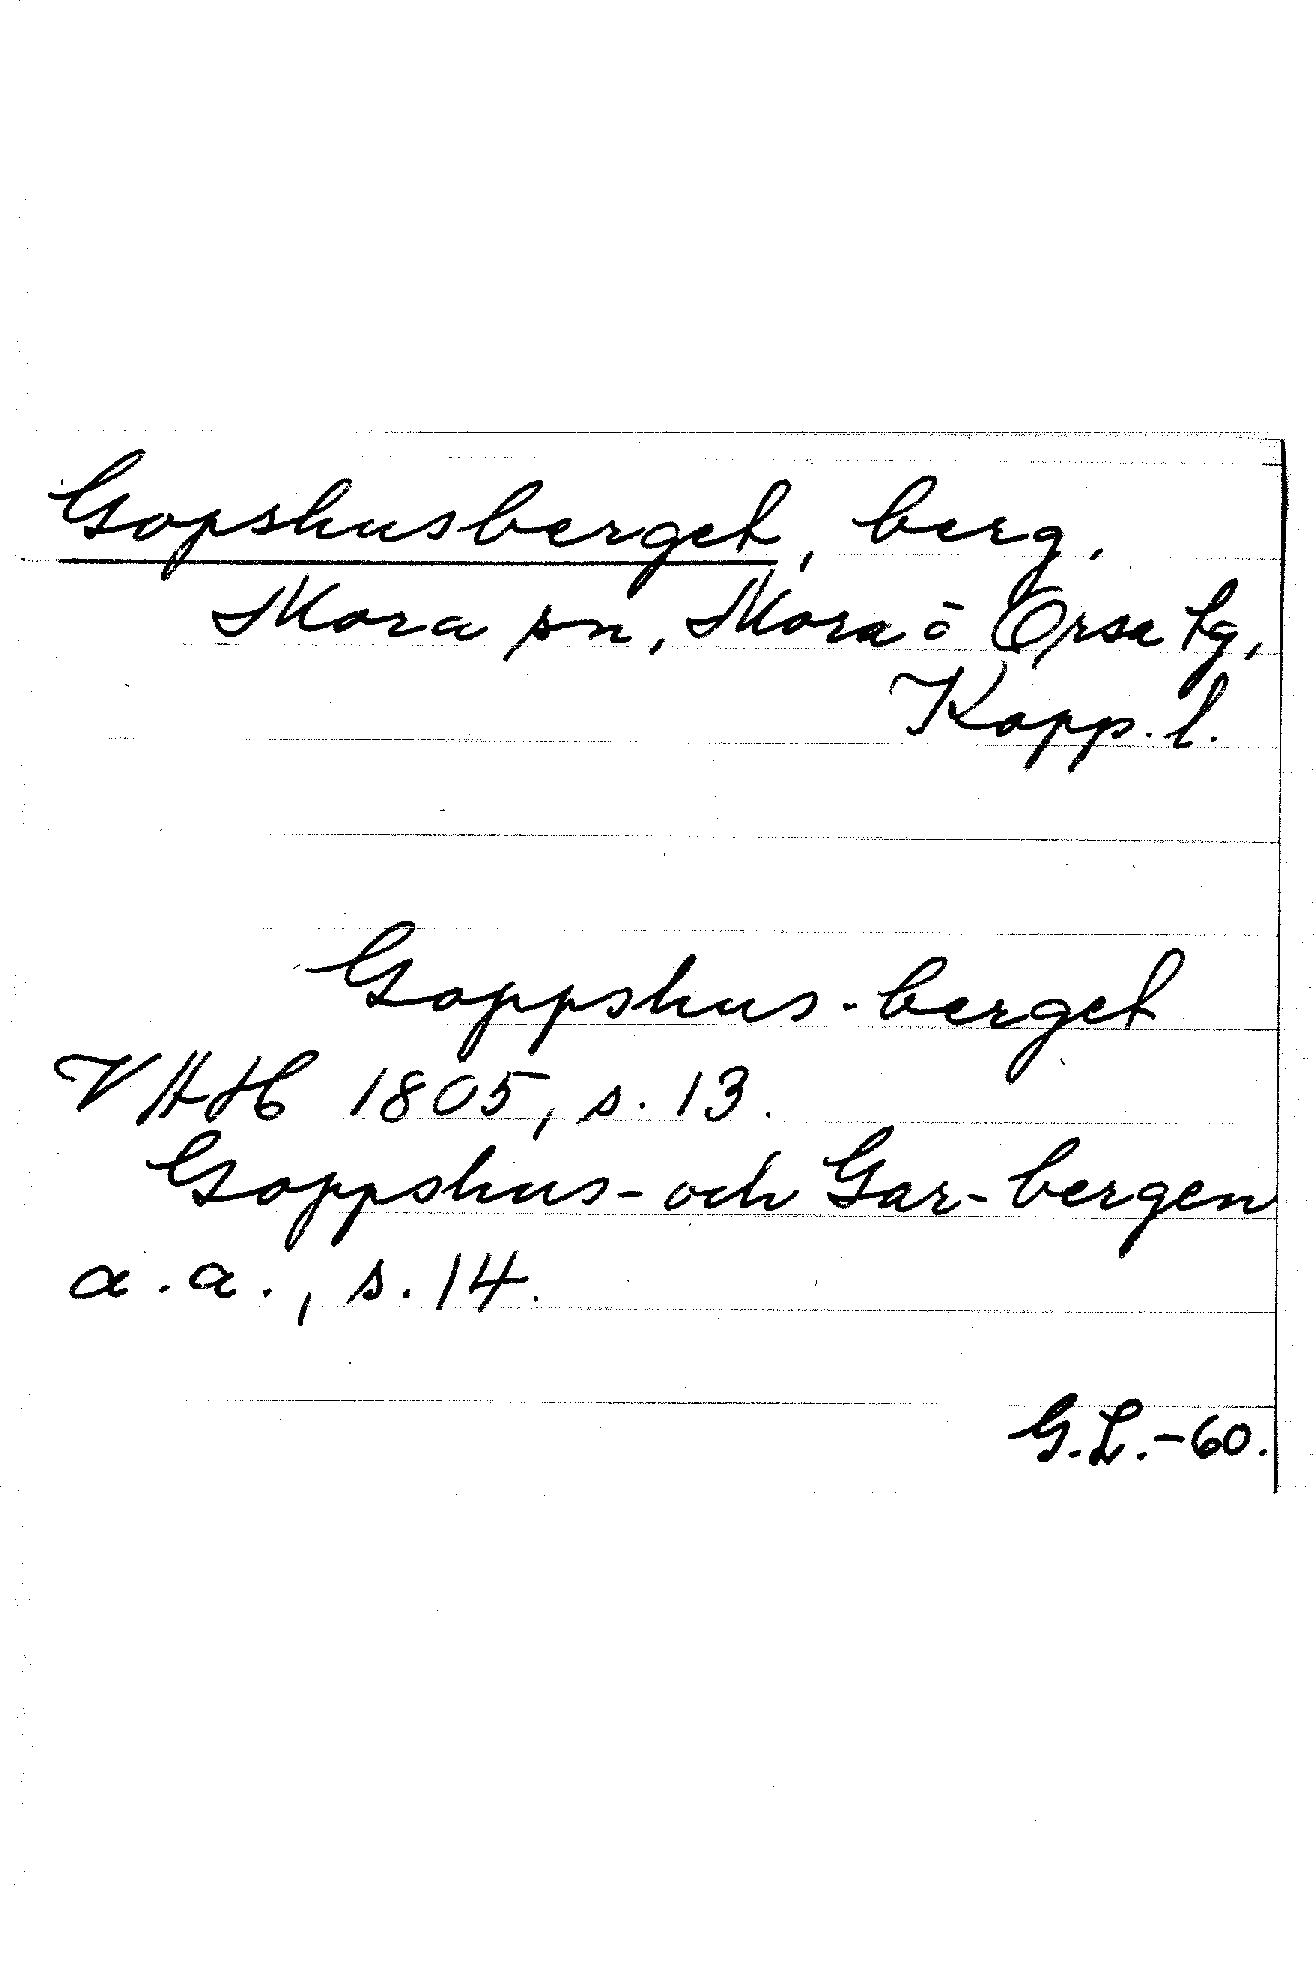 Gopshusberget, berg.
Mora sn, Mora o Orsa tg,
Kopp. l.
Goppshus-berget
VHAH 1805, s. 13.
Goppshus- och Gar-bergen
a.a., s. 14.
G.L.-60.